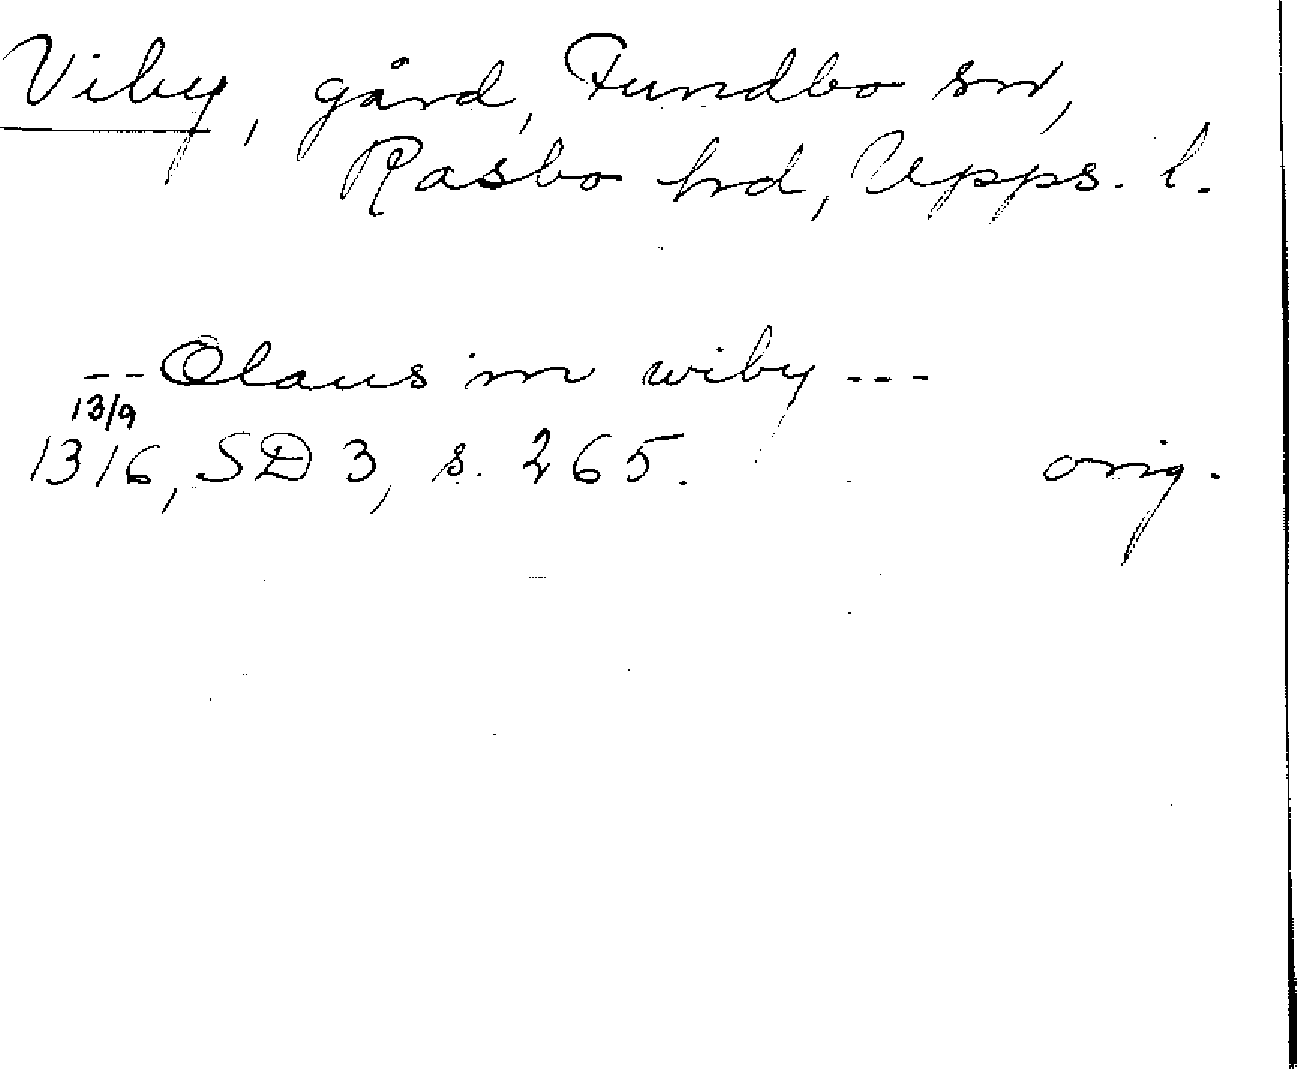 Viby, gård, Fundbo sn,
Rasbo hd, Upps. l.
-- Olaus in wiby ---
13/9
1316, SD 3, s. 265. orig.